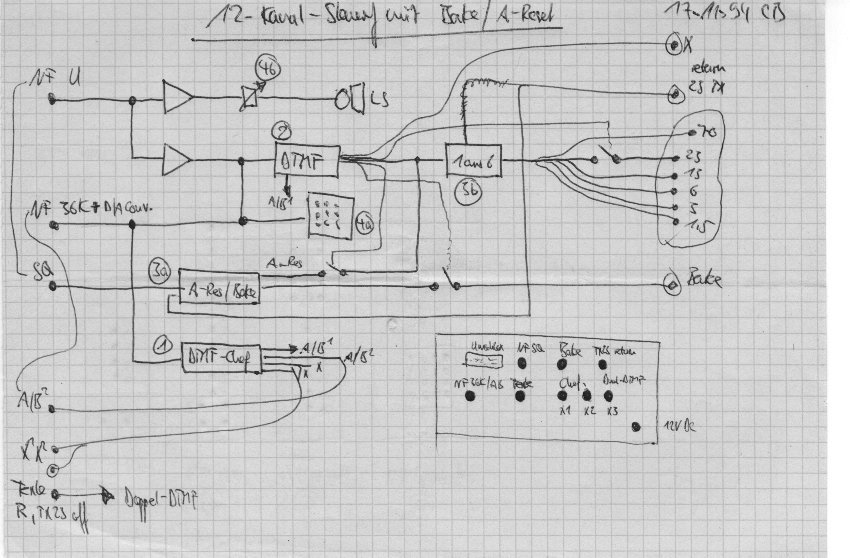 12-Kanal-Steuerg mit Bake/A-Reset
17.11.94 CB
NF U
4b
LS
X
return
23 TX
2
DTMF
A/B¹
4a
1 aus 6
3b
70
23
15
6
3
1,5
NF 36K + D/A Conv.
SQ
3a
A-Res/Bake
A-Res
Bake
1
DTMF-Chef
A/B¹
X
X
A/B²
A/B²
X¹X²
R, TX23 off
Doppel-DTMF
NF SQ
Bake
TX23 return
NF 36K/AB
Chef
Dual-DTMF
X1 X2 X3
12V DC